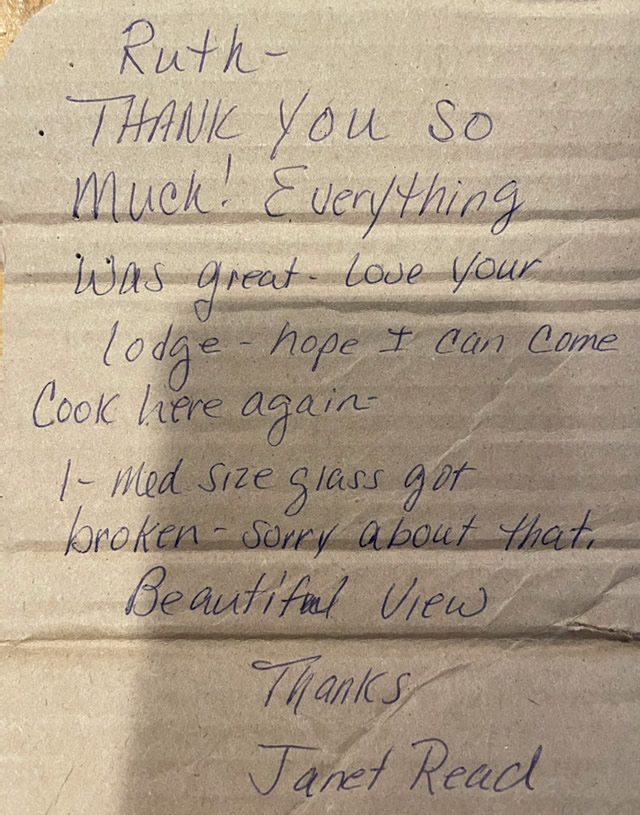 Ruth-
THANK YOU SO
Much! Everything
Was great- Love your
lodge - hope I can come
Cook here again-
1- Med size glass got
broken - sorry about that.
Beautiful View
Thanks
Janet Read